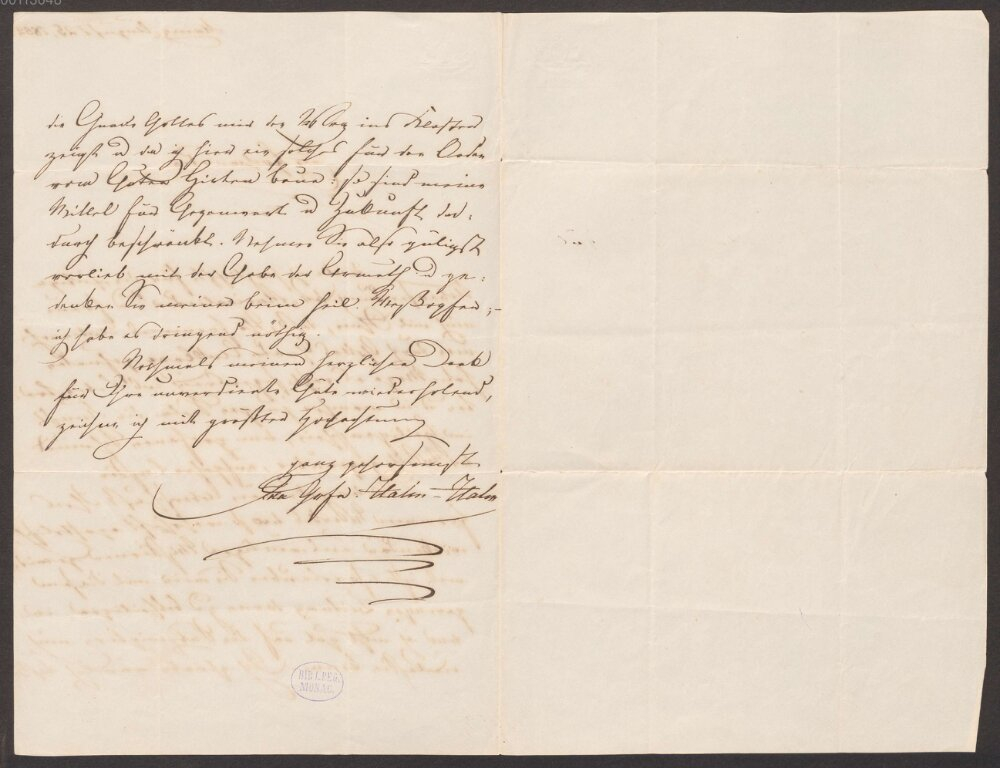 die Gnade Gottes mir den Weg ins Kloster
zeigt u da ich hier ein solches für den Orden
vom Guten Hirten baue: so sind meine
Mittel für Gegenwart u Zukunft da-
durch beschränkt. Nehmen Sie also gütigst
vorlieb mit der Gabe der Armuth u ge-
denken Sie meiner beim heil. Meßopfer;
ich habe es dringend nöthig.
Nochmals meinen herzlichen Dank
für Ihre unverdiente Güte wiederholend,
zeichne ich mit größter Hochachtung
ganz gehorsamst
Ida Gräfin Hahn-Hahn
BIBL. REG.
MONAC.